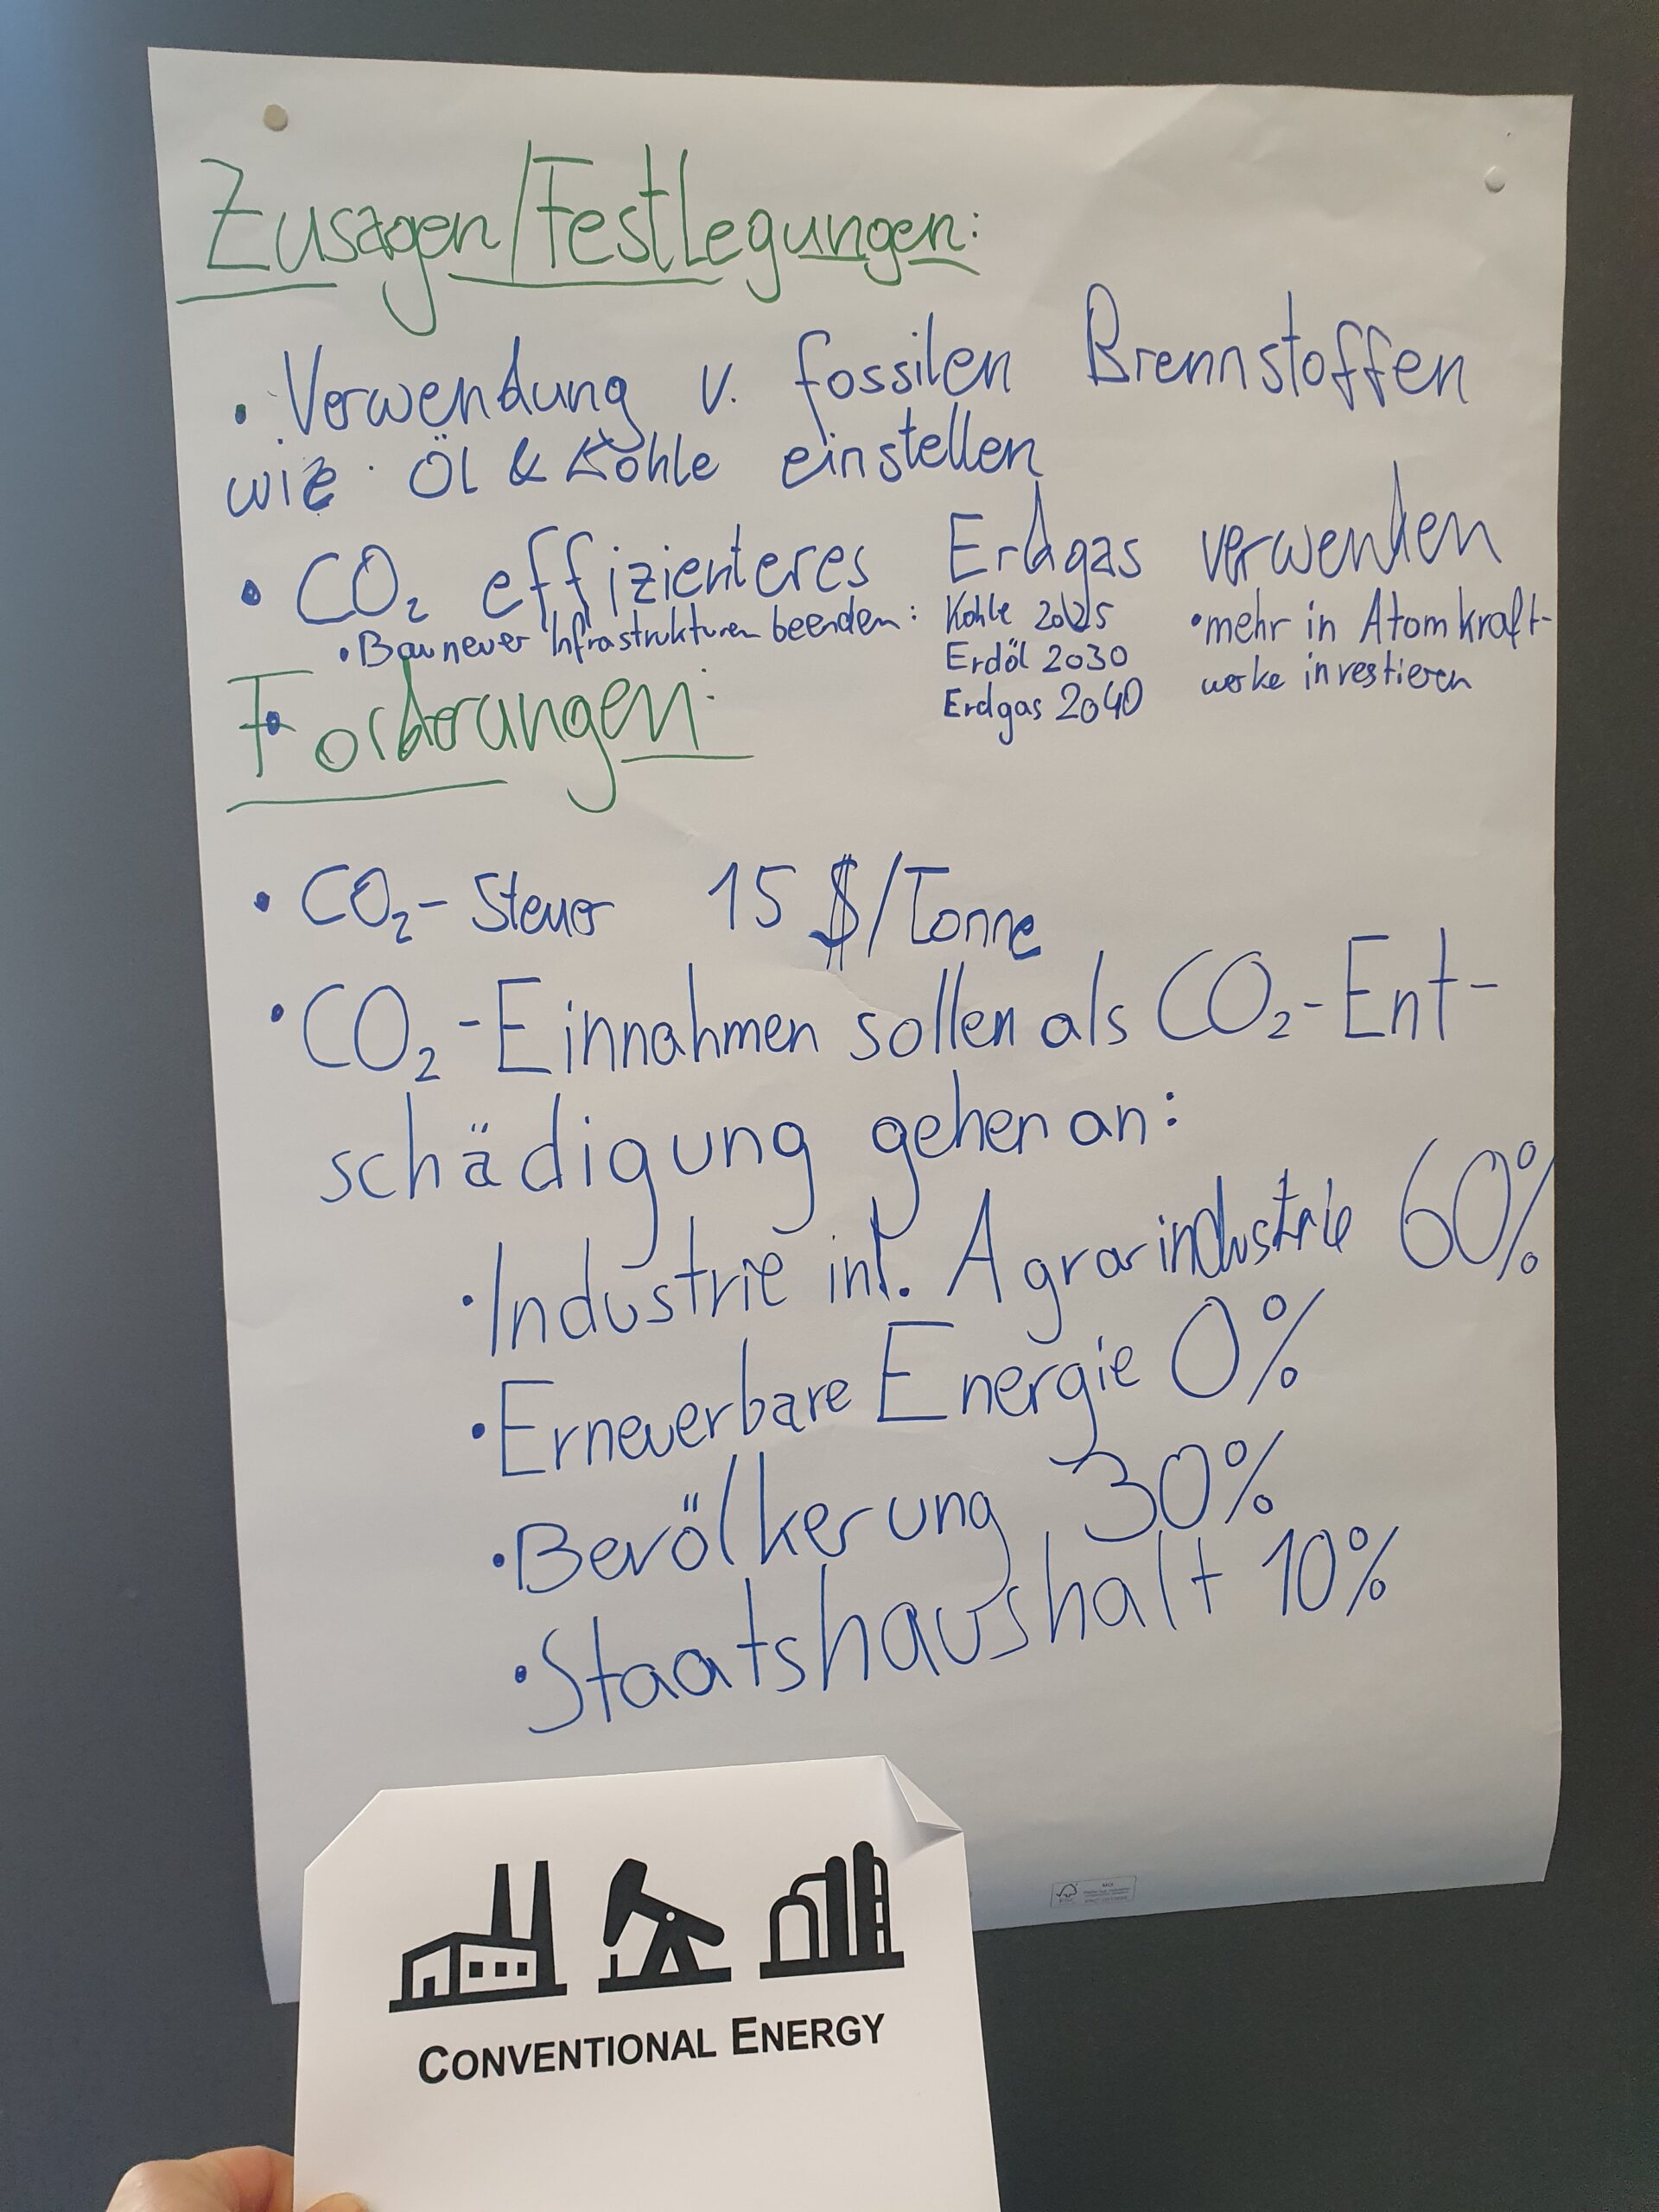 Zusagen/Festlegungen:
• Verwendung v. fossilen Brennstoffen
wie Öl & Kohle einstellen
• CO₂ effizienteres Erdgas verwenden
• Bau neuer Infrastrukturen beenden: Kohle 2025
Erdöl 2030
Erdgas 2040
• mehr in Atomkraft-
werke investieren
Forderungen:
• CO₂-Steuer 15 $/Tonne
• CO₂-Einnahmen sollen als CO₂-Ent-
schädigung gehen an:
• Industrie inl. Agrarindustrie 60%
• Erneuerbare Energie 0%
• Bevölkerung 30%
• Staatshaushalt 10%
CONVENTIONAL ENERGY